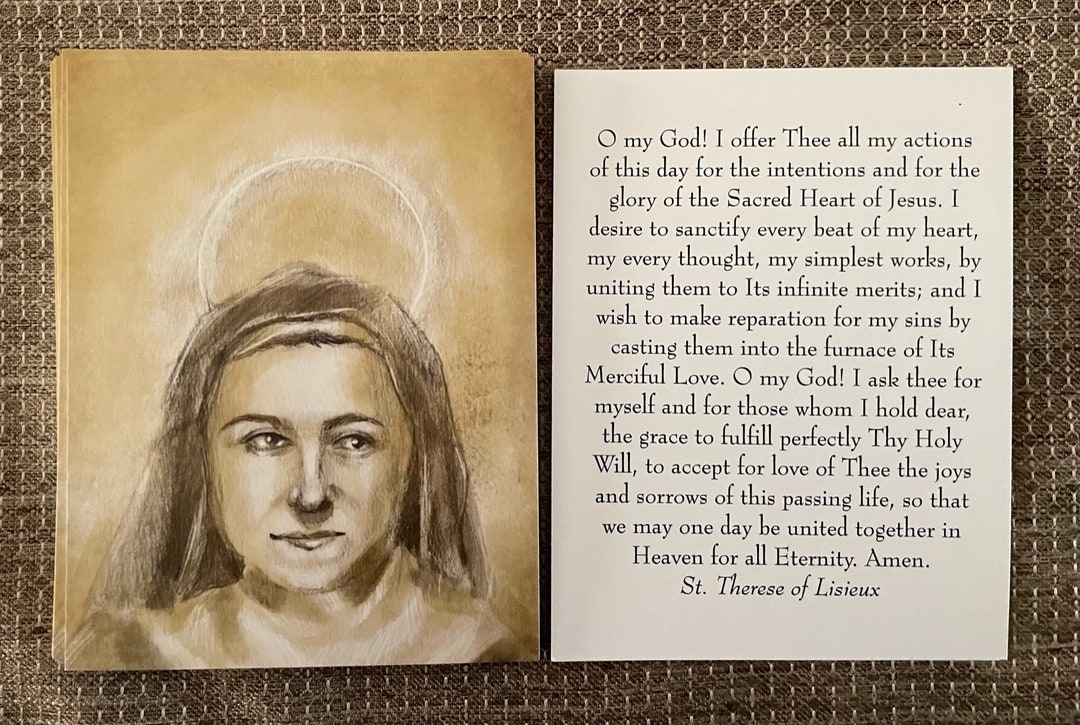 O my God! I offer Thee all my actions
of this day for the intentions and for the
glory of the Sacred Heart of Jesus. I
desire to sanctify every beat of my heart,
my every thought, my simplest works, by
uniting them to Its infinite merits; and I
wish to make reparation for my sins by
casting them into the furnace of Its
Merciful Love. O my God! I ask thee for
myself and for those whom I hold dear,
the grace to fulfill perfectly Thy Holy
Will, to accept for love of Thee the joys
and sorrows of this passing life, so that
we may one day be united together in
Heaven for all Eternity. Amen.
St. Therese of Lisieux